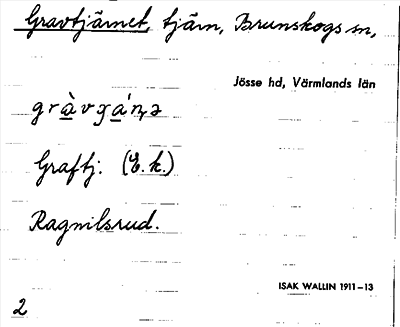 Gravtjärnet, tjärn, Brunskogs sn,
Jösse hd, Värmlands län
Graftj: (E. k.)
Ragnilsrud.
ISAK WALLIN 1911–13
2